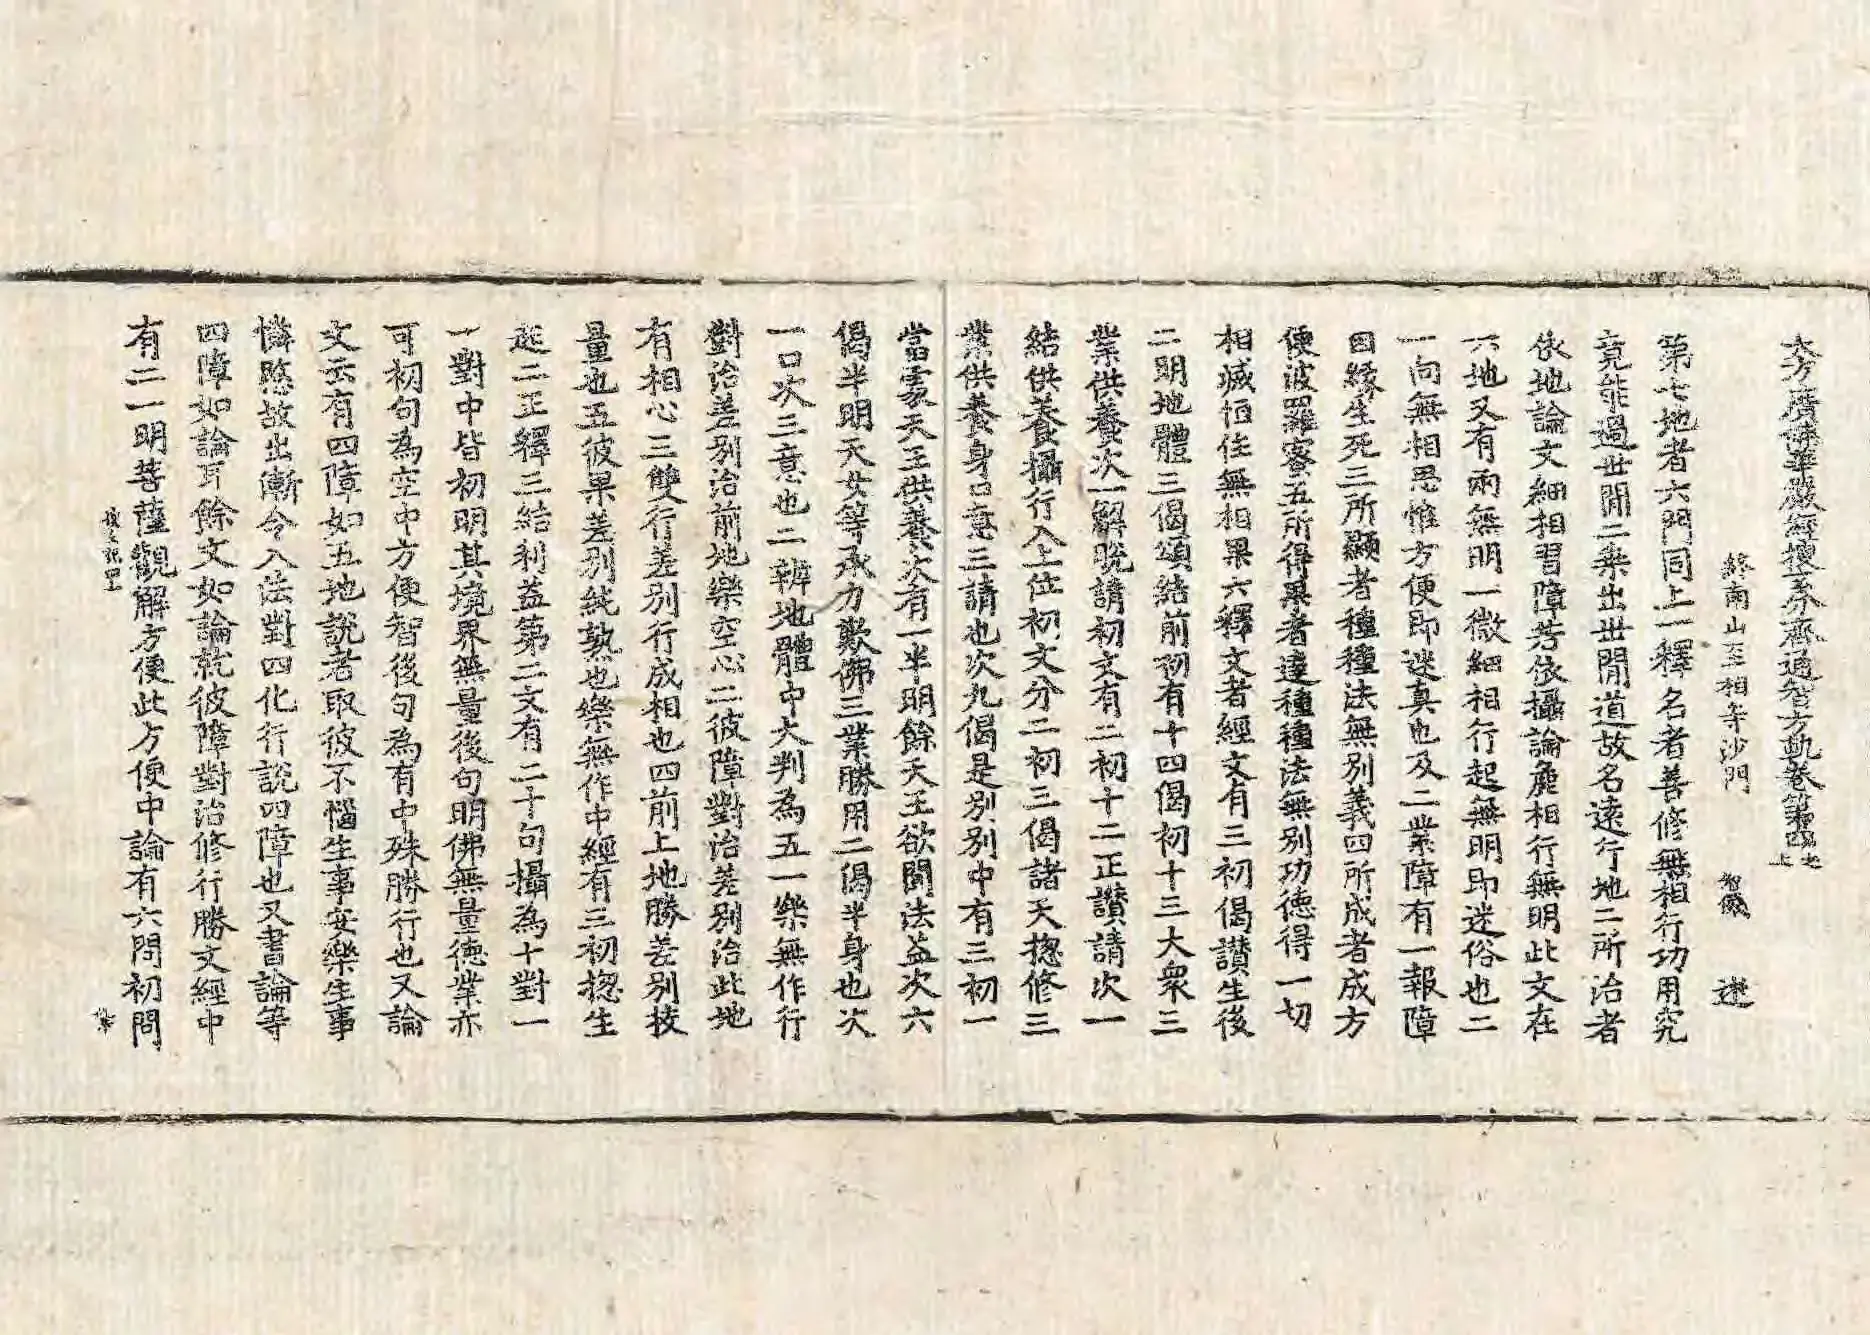 大方廣佛華嚴經搜玄分齊通智方軌卷第四之上
終南山至相寺沙門 智儼 述
第七地者六門同上一釋名者善修無相行功用究
竟能過世間二乘出世間道故名遠行地二所治者
依地論文細相習障若依攝論麁相行無明此文在
六地又有兩無明一微細相行起無明即迷俗也二
一向無相思惟方便即迷真也及二業障有一報障
因緣生死三所顯者種種法無別義四所成者成方
便波羅蜜五所得果者達種種法無別功德得一切
相滅恒住無相果六釋文者經文有三初偈讚生後
二明地體三偈頌結前初有十四偈初十三大衆三
業供養次一解脫請初文有二初十二正讚請次一
結供養攝行入上位初文分二初三偈諸天揔修三
業供養身口意三請也次九偈是別別中有三初一
當蒙天王供養次有一半明餘天王欲聞法益次六
偈半明天女等承力歎佛三業勝用二偈半身也次
一口次三意也二辨地體中大判為五一樂無作行
對治差別治前地樂空心二彼障對治差別治此地
有相心三雙行差別行成相也四前上地勝差別挍
量也五彼果差別純熟也樂無作中經有三初揔生
起二正釋三結利益第二文有二十句攝為十對一
一對中皆初明其境界無量後句明佛無量德業亦
可初句為空中方便智後句為有中殊勝行也又論
文云有四障如五地說者取彼不惱生事安樂生事
憐愍故出漸令入法對四化行說四障也又書論等
四障如論耳餘文如論就彼障對治修行勝文經中
有二一明菩薩觀解方便此方便中論有六問初問
搜玄記四上